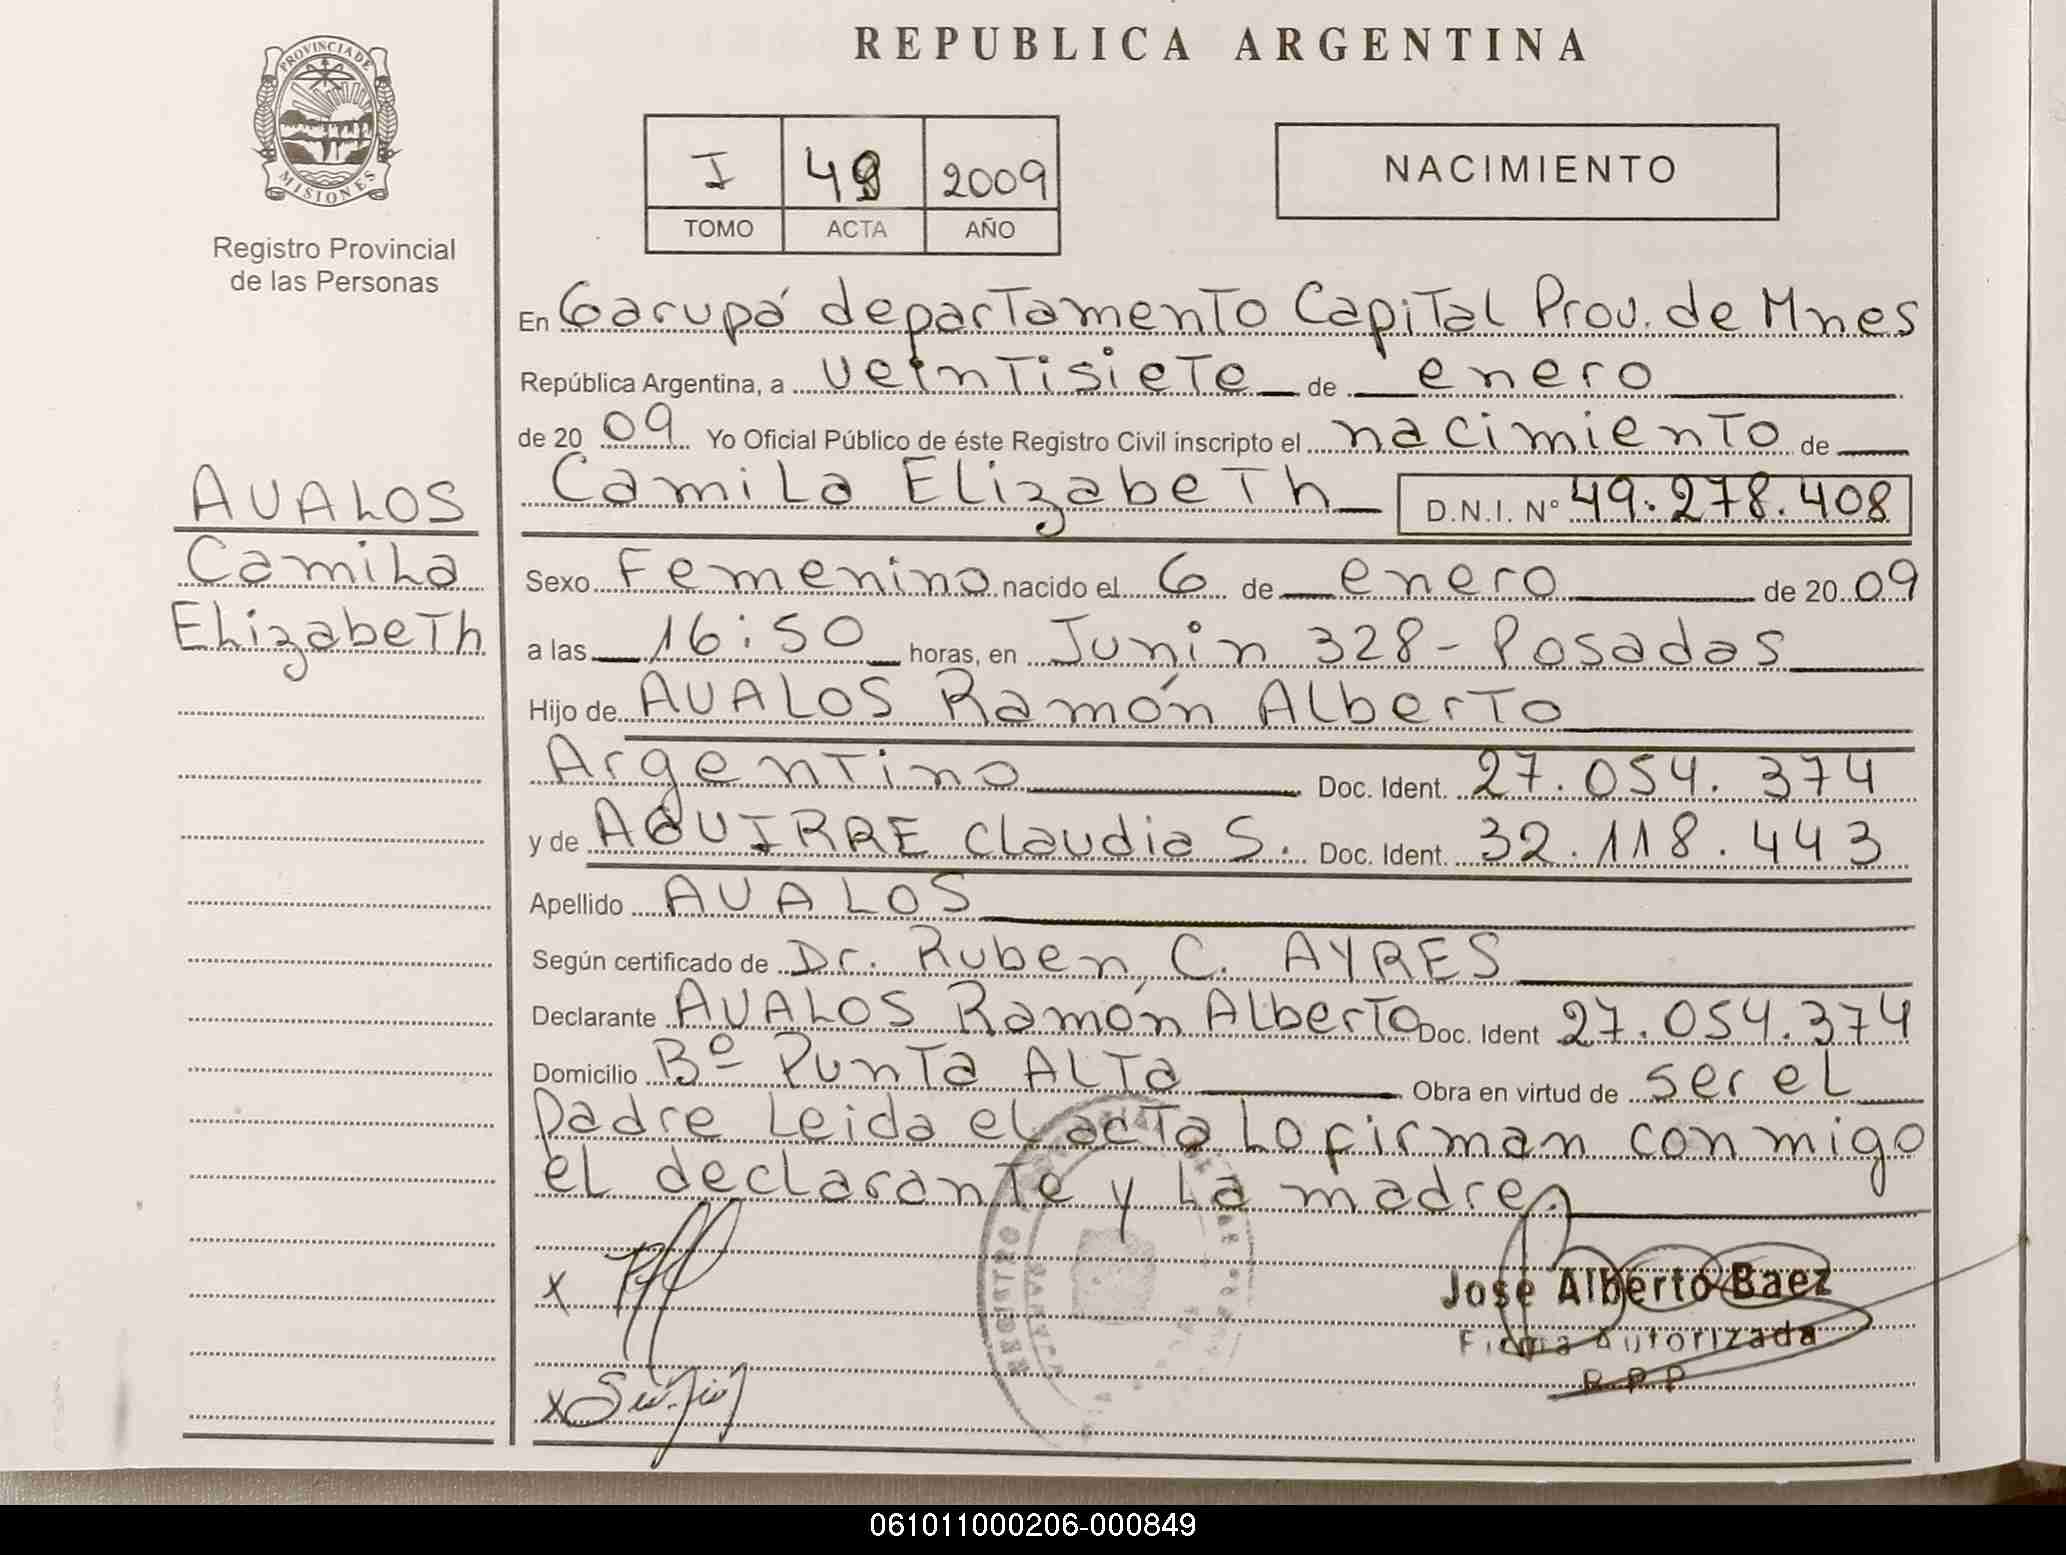 REPUBLICA ARGENTINA
PROVINCIA DE
MISIONES
Registro Provincial
de las Personas
I 2009
TOMO ACTA AÑO
NACIMIENTO
En Garupá departamento Capital Prov. de Mnes
República Argentina, a veintisiete de enero
de 2009 Yo Oficial Público de éste Registro Civil inscripto el nacimiento de
Camila Elizabeth D.N.I. N° 49.278.408
AVALOS
Camila
Elizabeth
Sexo Femenino nacido el 6 de enero de 2009
a las 16:50 horas, en Junin 328 - Posadas
Hijo de AVALOS Ramón Alberto
Argentino Doc. Ident. 27.054.374
y de AGUIRRE Claudia S. Doc. Ident. 32.118.443
Apellido AVALOS
Según certificado de Dr. Ruben C. AYRES
Declarante AVALOS Ramón Alberto Doc. Ident 27.054.374
Domicilio Bº Punta Alta Obra en virtud de ser el
padre Leida el acta lo firman conmigo
el declarante y la madre.
x
x
Jose Alberto Baez
Firma Autorizada
R.P.P
061011000206-000849